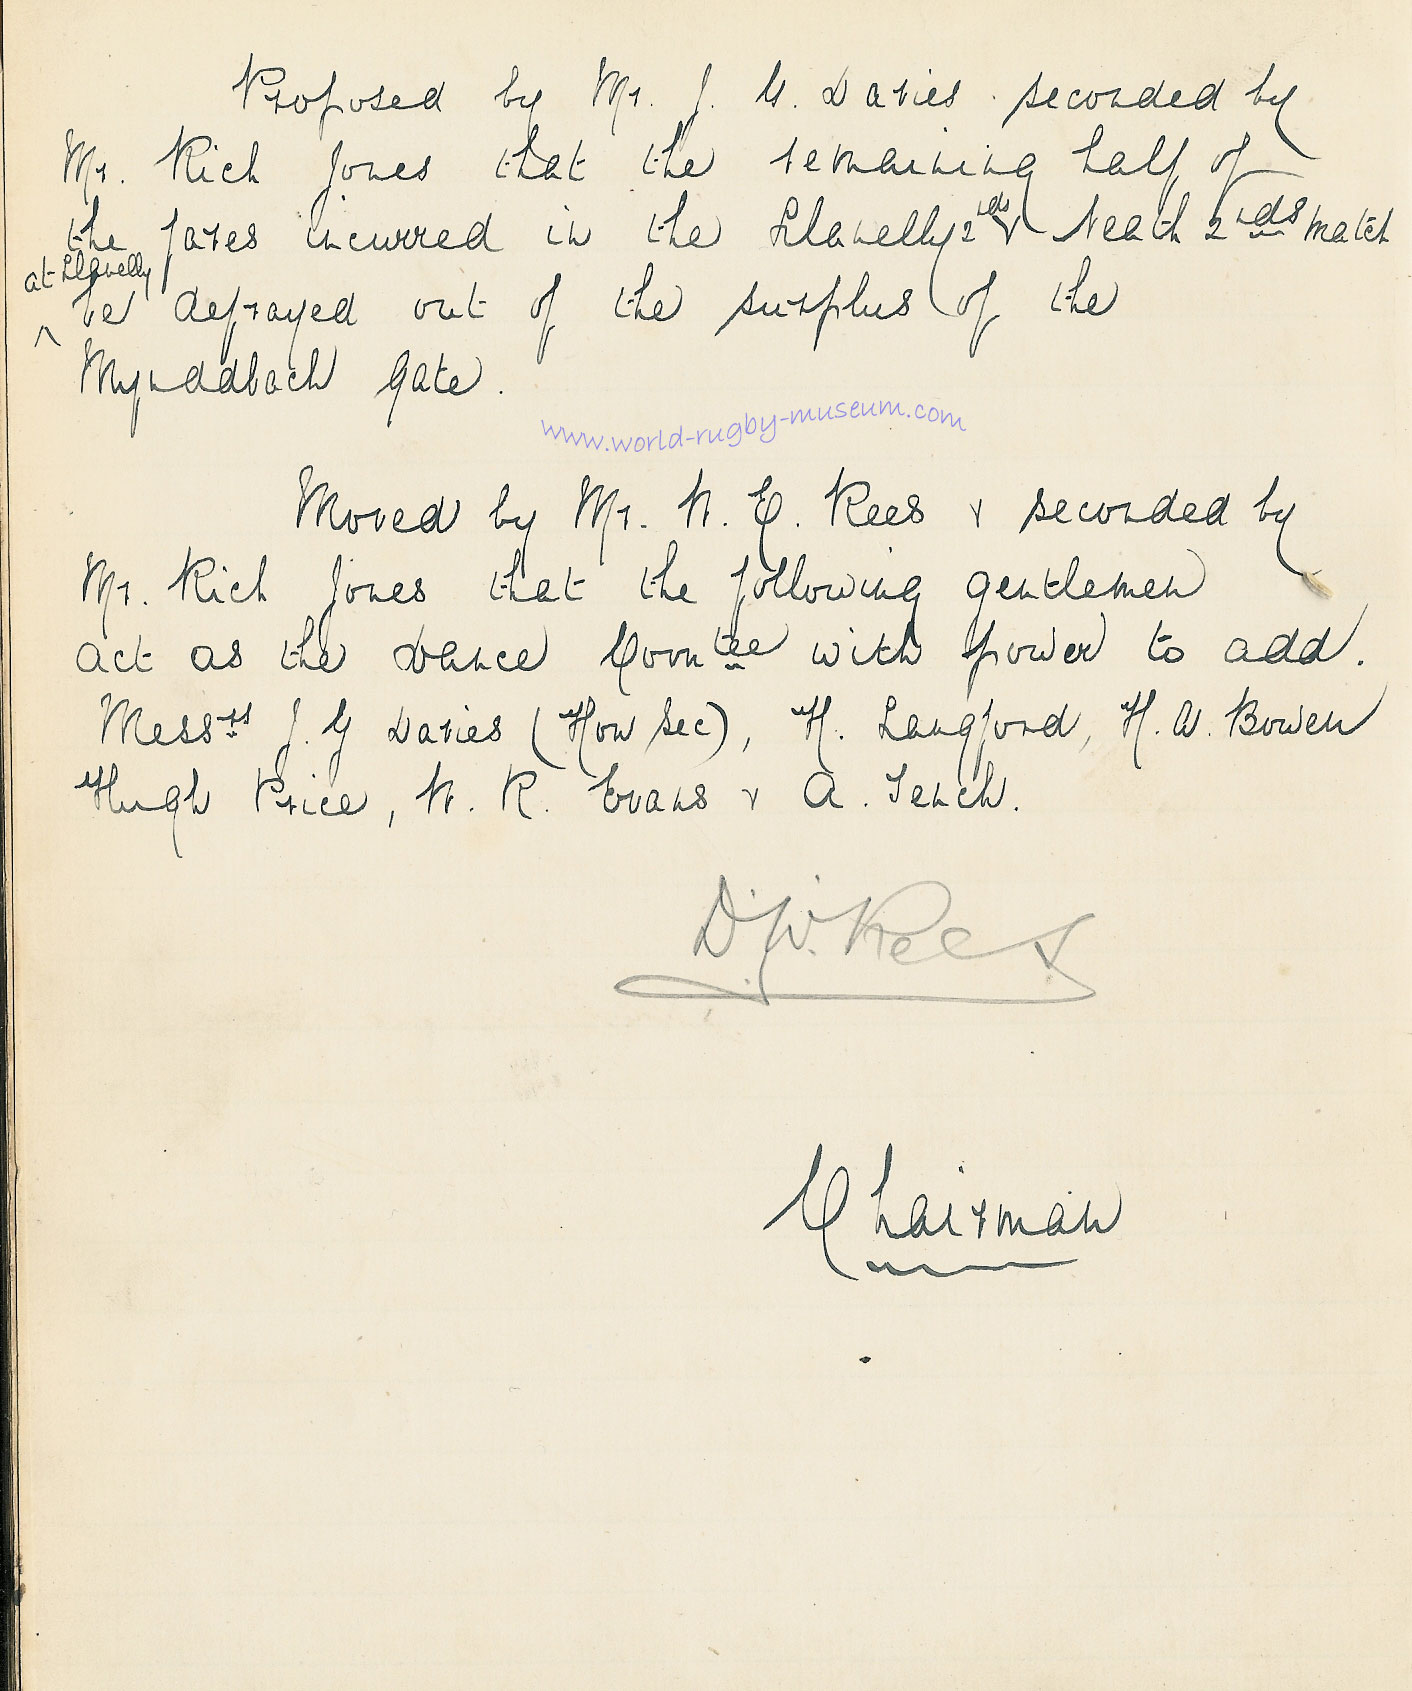 Proposed by Mr. J. G. Davies seconded by
Mr. Rich Jones that the remaining half of
the fares incurred in the Llanelly 2nds v Neath 2nds match
at Llanelly
be defrayed out of the surplus of the
Mynddbach gate.
www.world-rugby-museum.com
Moved by Mr. W. E. Rees & seconded by
Mr. Rich Jones that the following gentlemen
act as the Dance Comtee with power to add.
Messrs J. G Davies (Hon Sec), H. Langford, H. W. Bowen
Hugh Price, W. R. Evans & A. Tench.
D. W. Rees
Chairman